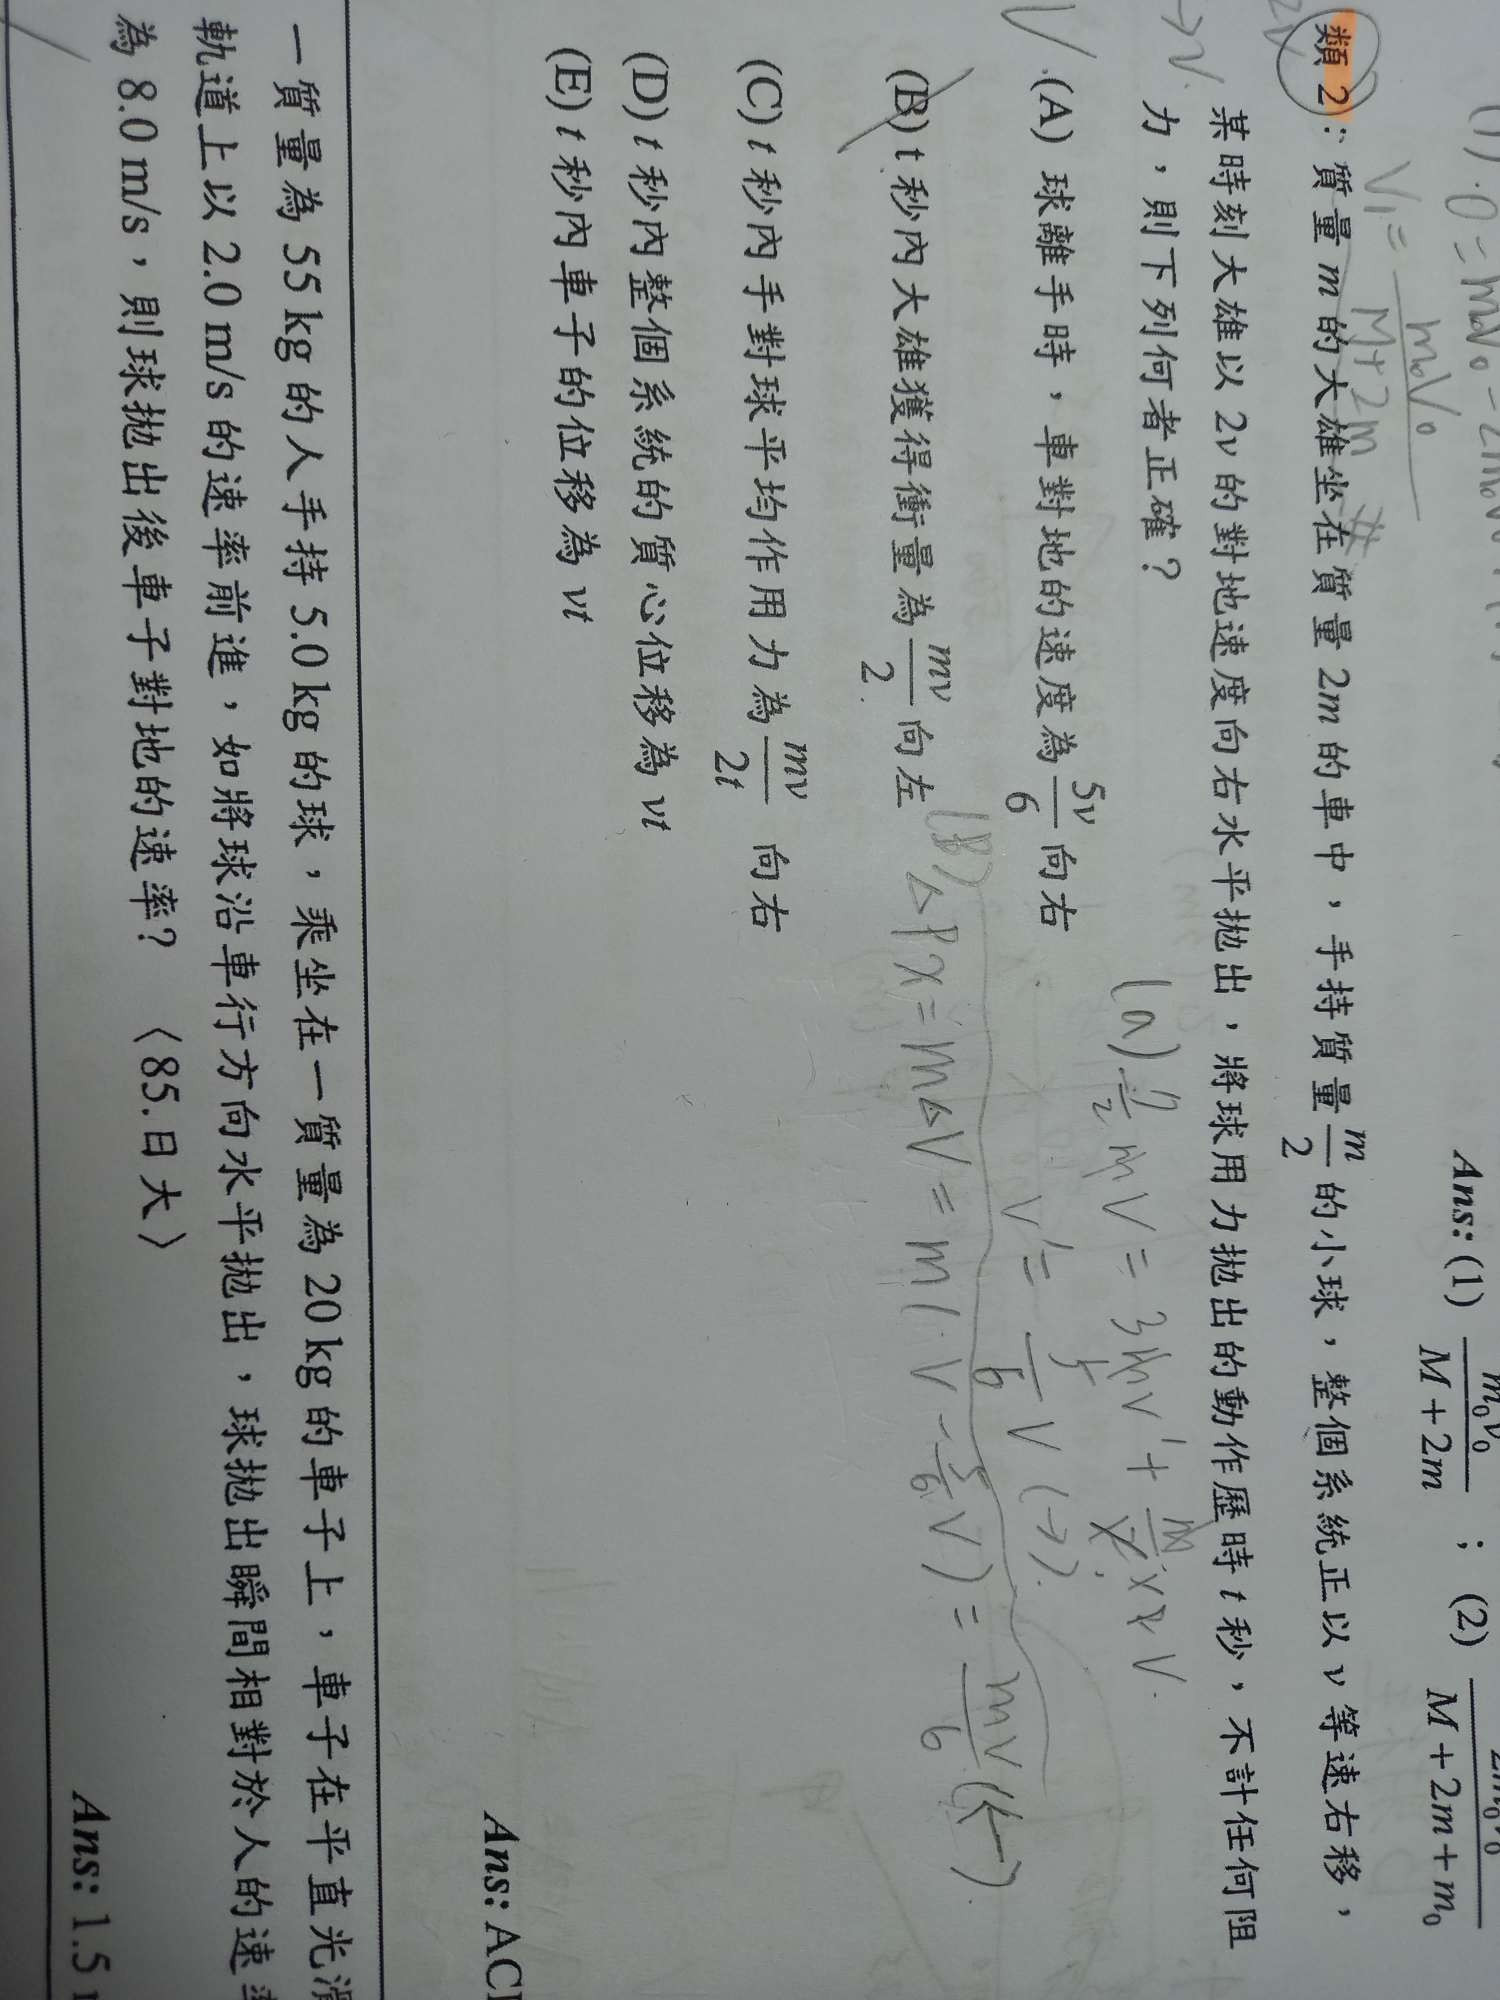 (1).0 = m₀V₀ - 2m₀V
V₁ = m₀V₀/(M+2m) #
Ans: (1) m₀v₀/(M+2m) ； (2) 2m₀v₀/(M+2m+m₀)
類 2：質量 m 的大雄坐在質量 2m 的車中，手持質量 m/2 的小球，整個系統正以 v 等速右移，
某時刻大雄以 2v 的對地速度向右水平拋出，將球用力拋出的動作歷時 t 秒，不計任何阻
力，則下列何者正確？
→V
(A) 球離手時，車對地的速度為 5v/6 向右
(a) 7/2 mV = 3mV' + m/2 × 2V.
V' = 5/6 V (→).
(B) t 秒內大雄獲得衝量為 mv/2 向左
(B) ΔPx = mΔV = m(V - 5/6 V) = mV/6 (←).
(C) t 秒內手對球平均作用力為 mv/2t 向右
(D) t 秒內整個系統的質心位移為 vt
(E) t 秒內車子的位移為 vt
Ans: AC
一質量為 55 kg 的人手持 5.0 kg 的球，乘坐在一質量為 20 kg 的車子上，車子在平直光滑
軌道上以 2.0 m/s 的速率前進，如將球沿車行方向水平拋出，球拋出瞬間相對於人的速率
為 8.0 m/s，則球拋出後車子對地的速率？ 〈85.日大〉
Ans: 1.5